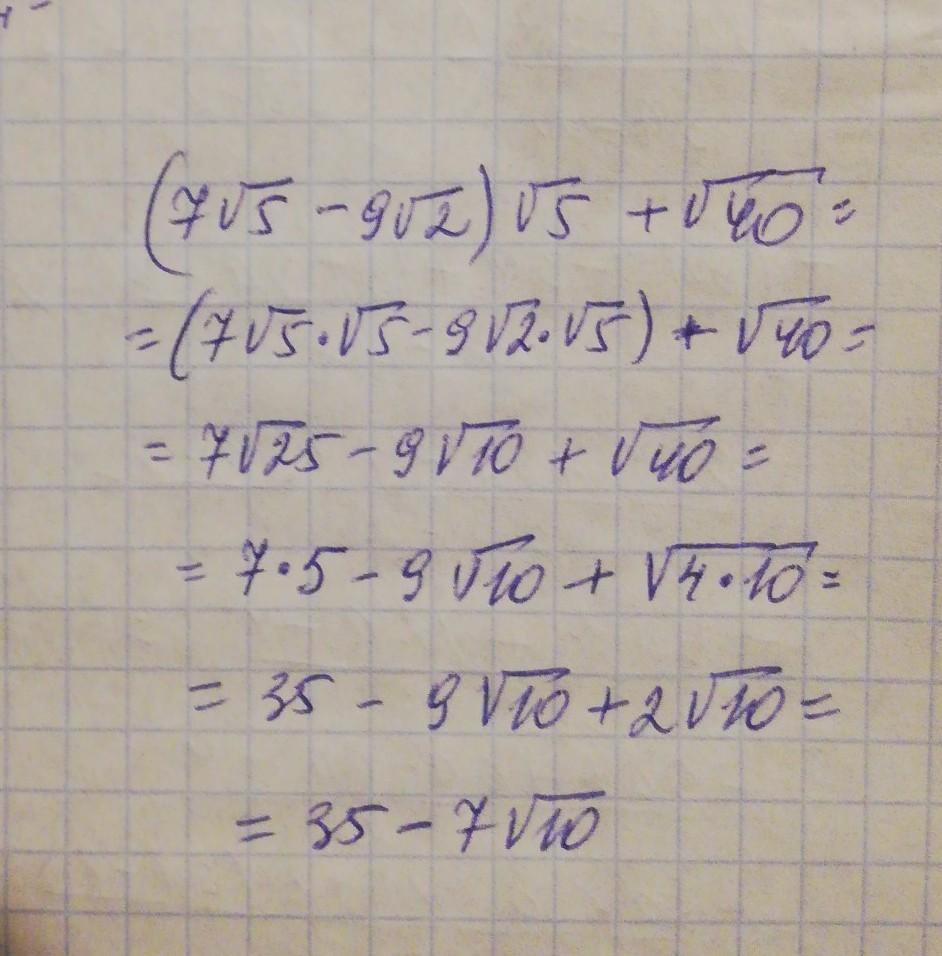 (7√5 - 9√2)√5 + √40 =
= (7√5·√5 - 9√2·√5) + √40 =
= 7√25 - 9√10 + √40 =
= 7·5 - 9√10 + √4·10 =
= 35 - 9√10 + 2√10 =
= 35 - 7√10